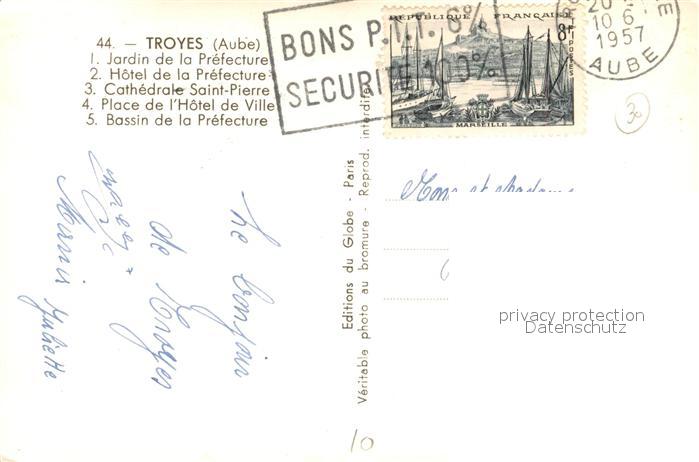 44. — TROYES (Aube)
1. Jardin de la Préfecture
2. Hôtel de la Préfecture
3. Cathédrale Saint-Pierre
4. Place de l'Hôtel de Ville
5. Bassin de la Préfecture
BONS P.T.T. 6%
SECURITE 100%
REPUBLIQUE FRANÇAISE
8F
POSTES
MARSEILLE
20
10 6
1957
AUBE
30
Editions du Globe - Paris
Véritable photo au bromure - Reprod. interdite
Le bonjour
de Troyes
Juliette
Mons et Madame
privacy protection
Datenschutz
10